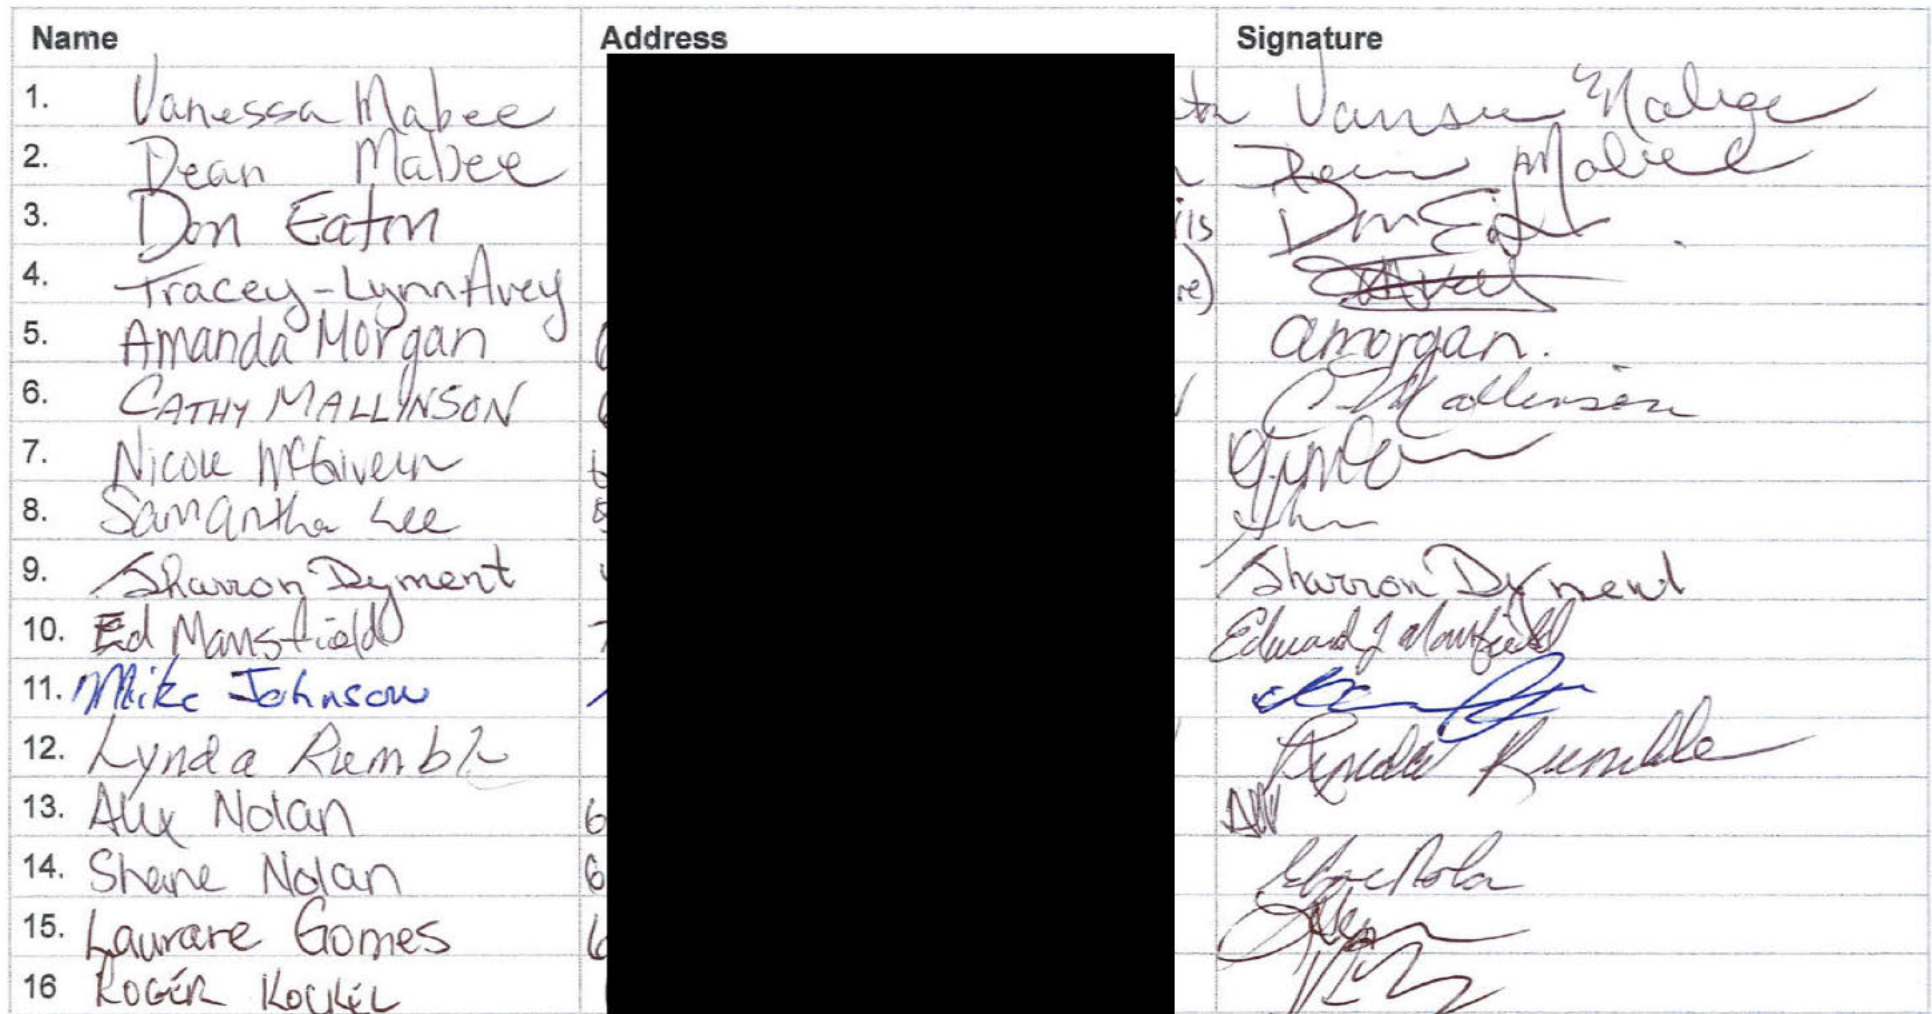 Name Address Signature
1. Vanessa Mabee Mabee
2. Dean Mabee Dean Mabee
3. Don Eaton ils Don Eat
4. Tracey-Lynn Avey re) Avey
5. Amanda Morgan amorgan.
6. CATHY MALLINSON C Mallinson
7. Nicole McGivern
8. Samantha Lee
9. Sharron Dyment Sharron Dyment
10. Ed Mansfield Edward J Mansfield
11. Mike Johnson
12. Lynda Rumble Lynda Rumble
13. Alex Nolan 6 AN
14. Shane Nolan 6 Shane Nolan
15. Gomes 6
16 ROGER KOCKEL